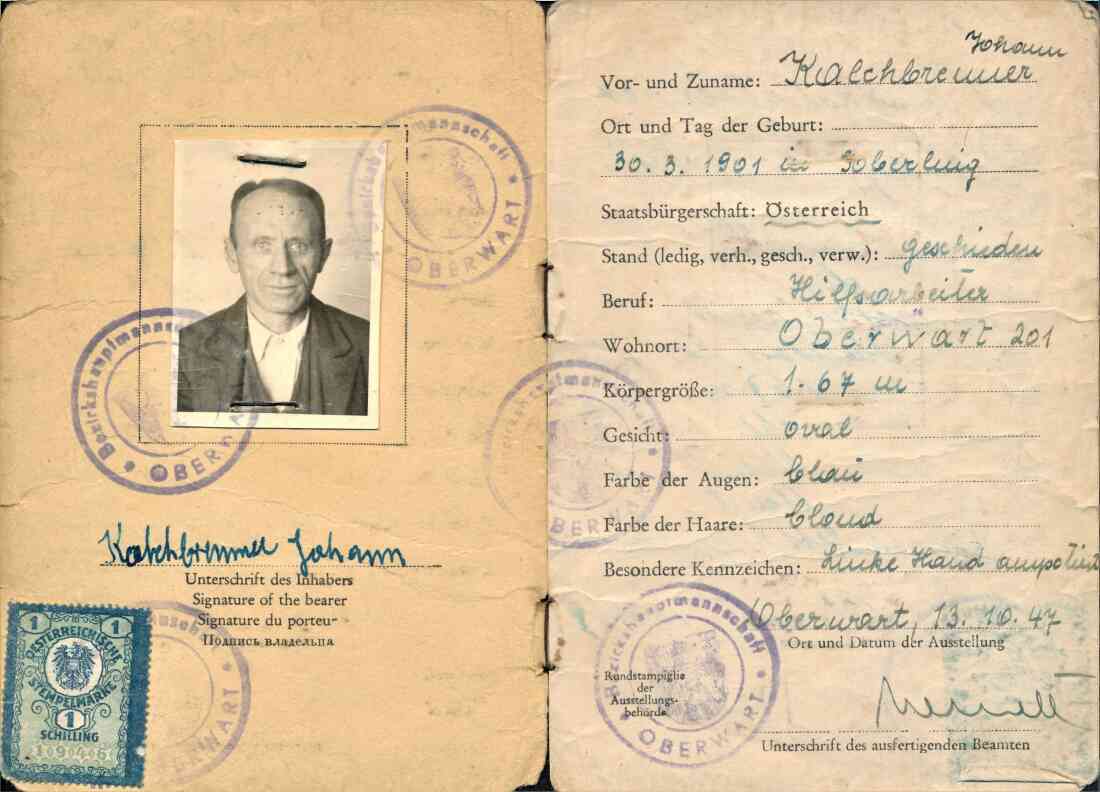 Bezirkshauptmannschaft
OBERWART
Bezirkshauptmannschaft
OBERWART
Kalchbrenner Johann
Unterschrift des Inhabers
Signature of the bearer
Signature du porteur
Подпись владельца
1 1
OESTERREICHISCHE
STEMPELMARKE
1
SCHILLING
1946
OBERWART
Johann
Vor- und Zuname: Kalchbrenner
Ort und Tag der Geburt:
30. 3. 1901 in Goberling
Staatsbürgerschaft: Österreich
Stand (ledig, verh., gesch., verw.): geschieden
Beruf: Hilfsarbeiter
Wohnort: Oberwart 201
Körpergröße: 1.67 m
Gesicht: oval
Farbe der Augen: blau
Farbe der Haare: blond
Besondere Kennzeichen: Linke Hand amputiert
Oberwart, 13. 10. 47
Ort und Datum der Ausstellung
Rundstampiglie
der
Ausstellungs-
behörde
Bezirkshauptmannschaft
OBERWART
Unterschrift des ausfertigenden Beamten